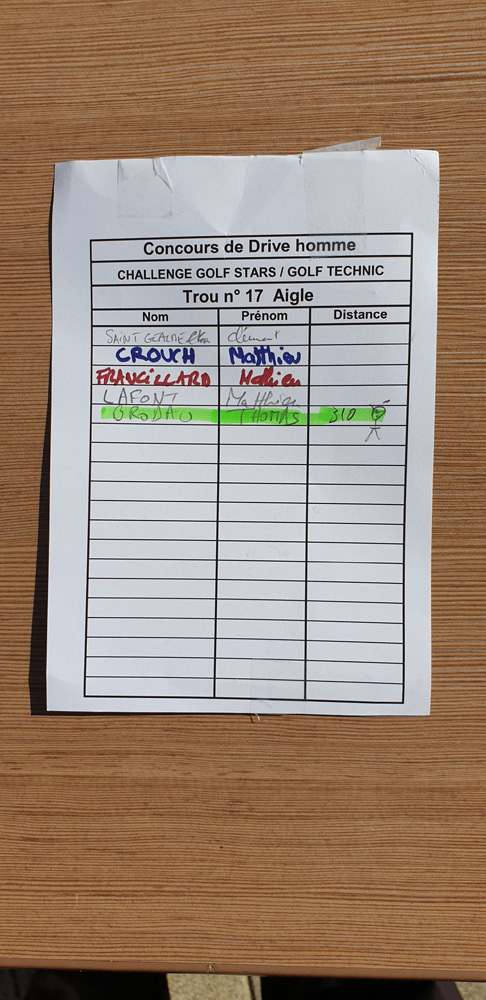 Concours de Drive homme
CHALLENGE GOLF STARS / GOLF TECHNIC
Trou n° 17 Aigle
Nom Prénom Distance
SAINT clément
CROUCH Matthieu
FRANCILLARD Mathieu
LAFONT Matthieu
THOMAS 310